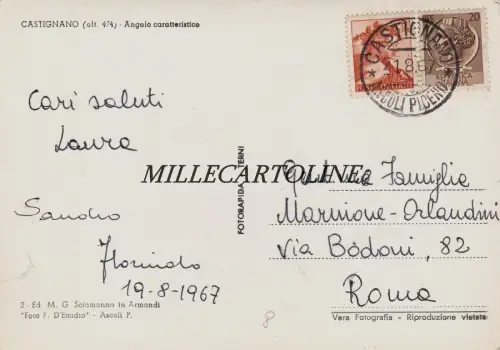 CASTIGNANO (alt. 474) - Angolo caratteristico
Cari saluti
Laura
Sandro
Florindo
19-8-1967
2 - Ed. M. G. Scipmanno in Armandi
"Foto F. D'Emidio" - Ascoli P.
FOTORAPIDA TERNI
MILLECARTOLINE
20
CASTIGNANO
ASCOLI PICENO
Famiglia
Marnione-Orlandini
Via Bodoni, 82
Roma
Vera Fotografia - Riproduzione vietata
8